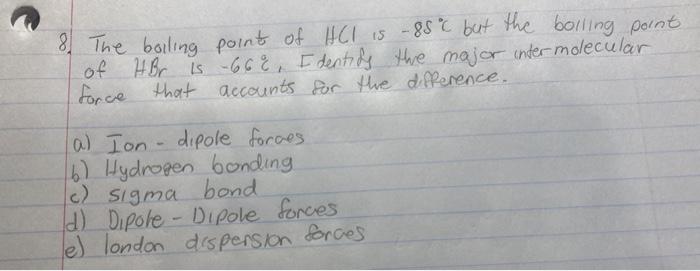 8. The boiling point of HCl is -85°C but the boiling point
of HBr is -66°C, Identify the major intermolecular
force that accounts for the difference.
a) Ion - dipole forces
b) Hydrogen bonding
c) sigma bond
d) Dipole - Dipole forces
e) london dispersion forces